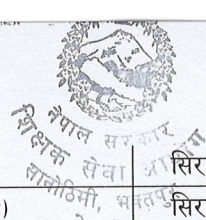 नेपाल सरकार
शिक्षक सेवा आयोग
सानोठिमी, भक्तपुर
सिर
सिर
)